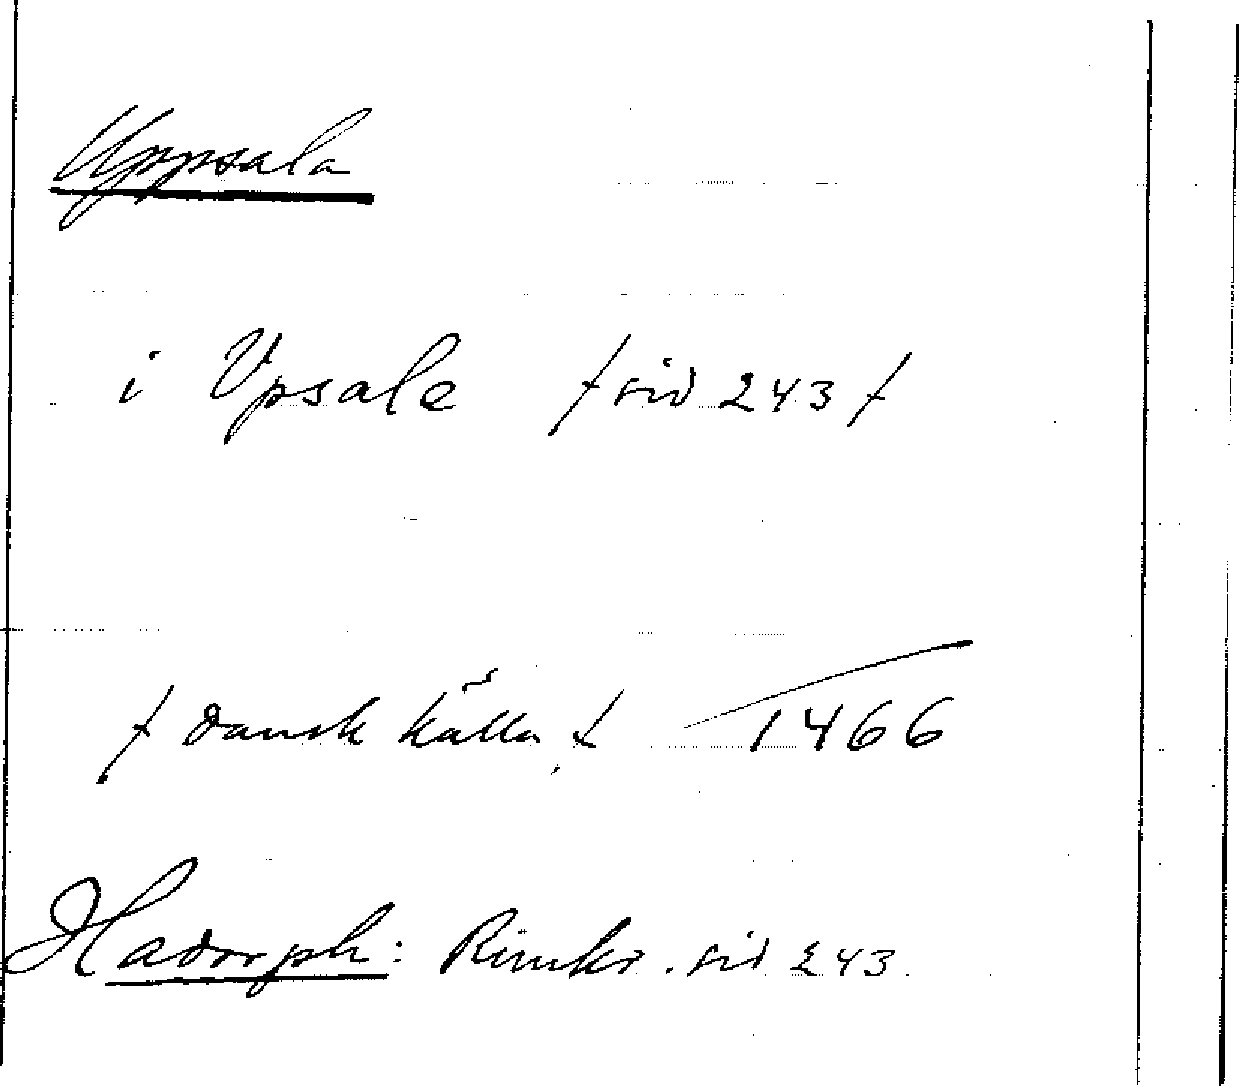 Uppsala
i Upsale / sid 243 /
/ dansk källa / 1466
Hadorph: Rimkr. sid 243.